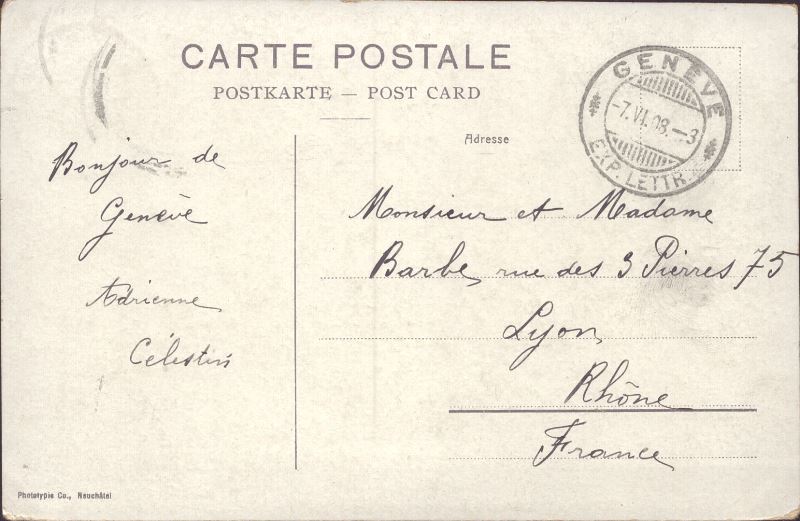 CARTE POSTALE
POSTKARTE — POST CARD
Adresse
GENÈVE
-7.VI.08.-3
EXP. LETTR.
Bonjour de
Genève
Adrienne
Célestin
Monsieur et Madame
Barbe, rue des 3 Pierres 75
Lyon
Rhône
France
Phototypie Co., Neuchâtel